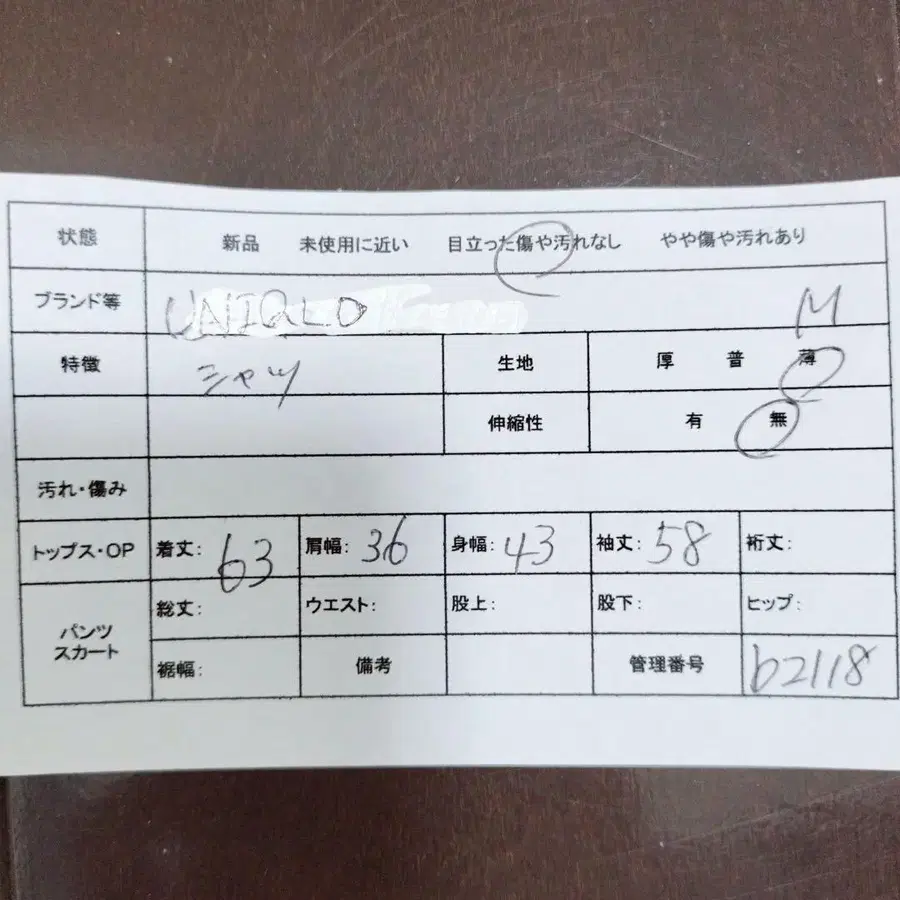 状態 新品 未使用に近い 目立った傷や汚れなし やや傷や汚れあり
ブランド等 UNIQLO M
特徴 シャツ 生地 厚 普 薄
伸縮性 有 無
汚れ・傷み
トップス・OP 着丈: 63 肩幅: 36 身幅: 43 袖丈: 58 裄丈:
パンツ スカート 総丈: ウエスト: 股上: 股下: ヒップ:
裾幅: 備考 管理番号 b2118